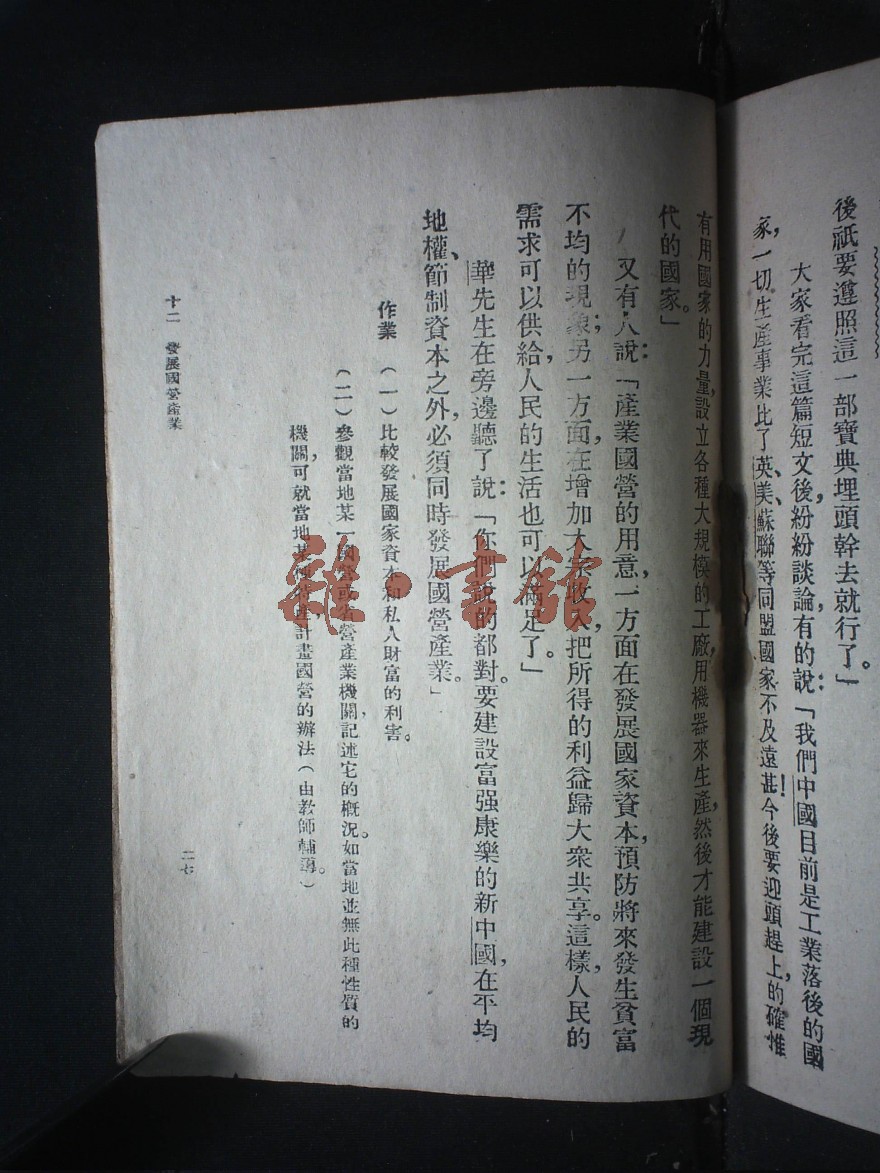 後祇要遵照這一部寶典埋頭幹去就行了。」
大家看完這篇短文後，紛紛談論，有的說：「我們中國目前是工業落後的國
家，一切生產事業比了英、美、蘇聯等同盟國家不及遠甚！今後要迎頭趕上，的確惟
有用國家的力量，設立各種大規模的工廠，用機器來生產，然後才能建設一個現
代的國家。」
又有人說：「產業國營的用意，一方面在發展國家資本，預防將來發生貧富
不均的現象；另一方面，在增加大宗收入，把所得的利益歸大衆共享。這樣，人民的
需求可以供給，人民的生活也可以滿足了。」
華先生在旁邊聽了說：「你們說的都對。要建設富强康樂的新中國，在平均
地權、節制資本之外，必須同時發展國營產業。」
作業　（一）比較發展國家資本和私人財富的利害。
（二）參觀當地某一國營或省營產業機關，記述它的概況。如當地並無此種性質的
機關，可就當地某種特產計畫國營的辦法（由教師輔導。）
十二　發展國營產業
二七
雜·書館